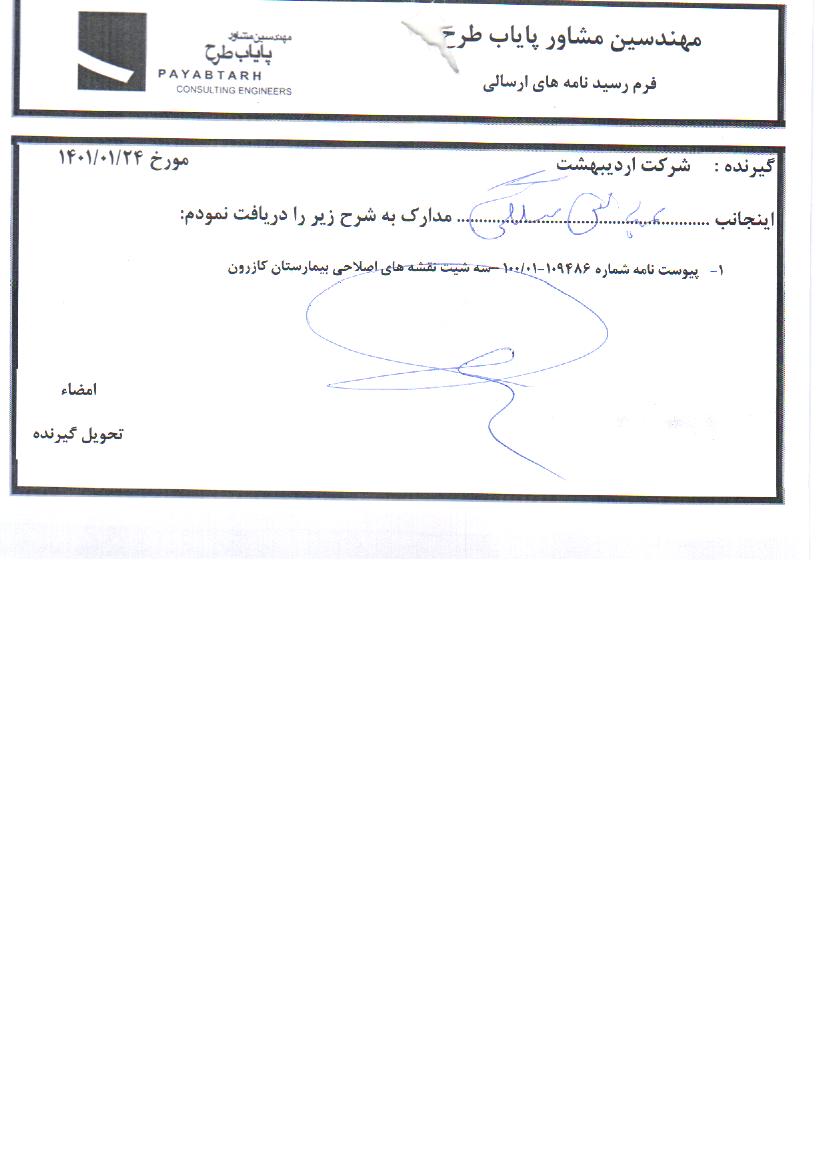 مهندسین مشاور پایاب طرح
فرم رسید نامه های ارسالی
مهندسین مشاور
پایاب طرح
PAYABTARH
CONSULTING ENGINEERS
گیرنده : شرکت اردیبهشت مورخ ۱۴۰۱/۰۱/۲۴
اینجانب .................... مدارک به شرح زیر را دریافت نمودم:
۱- پیوست نامه شماره ۱۰۹۴۸۶-۱۰۰/۰۱ –سه شیت نقشه های اصلاحی بیمارستان کازرون
امضاء
تحویل گیرنده